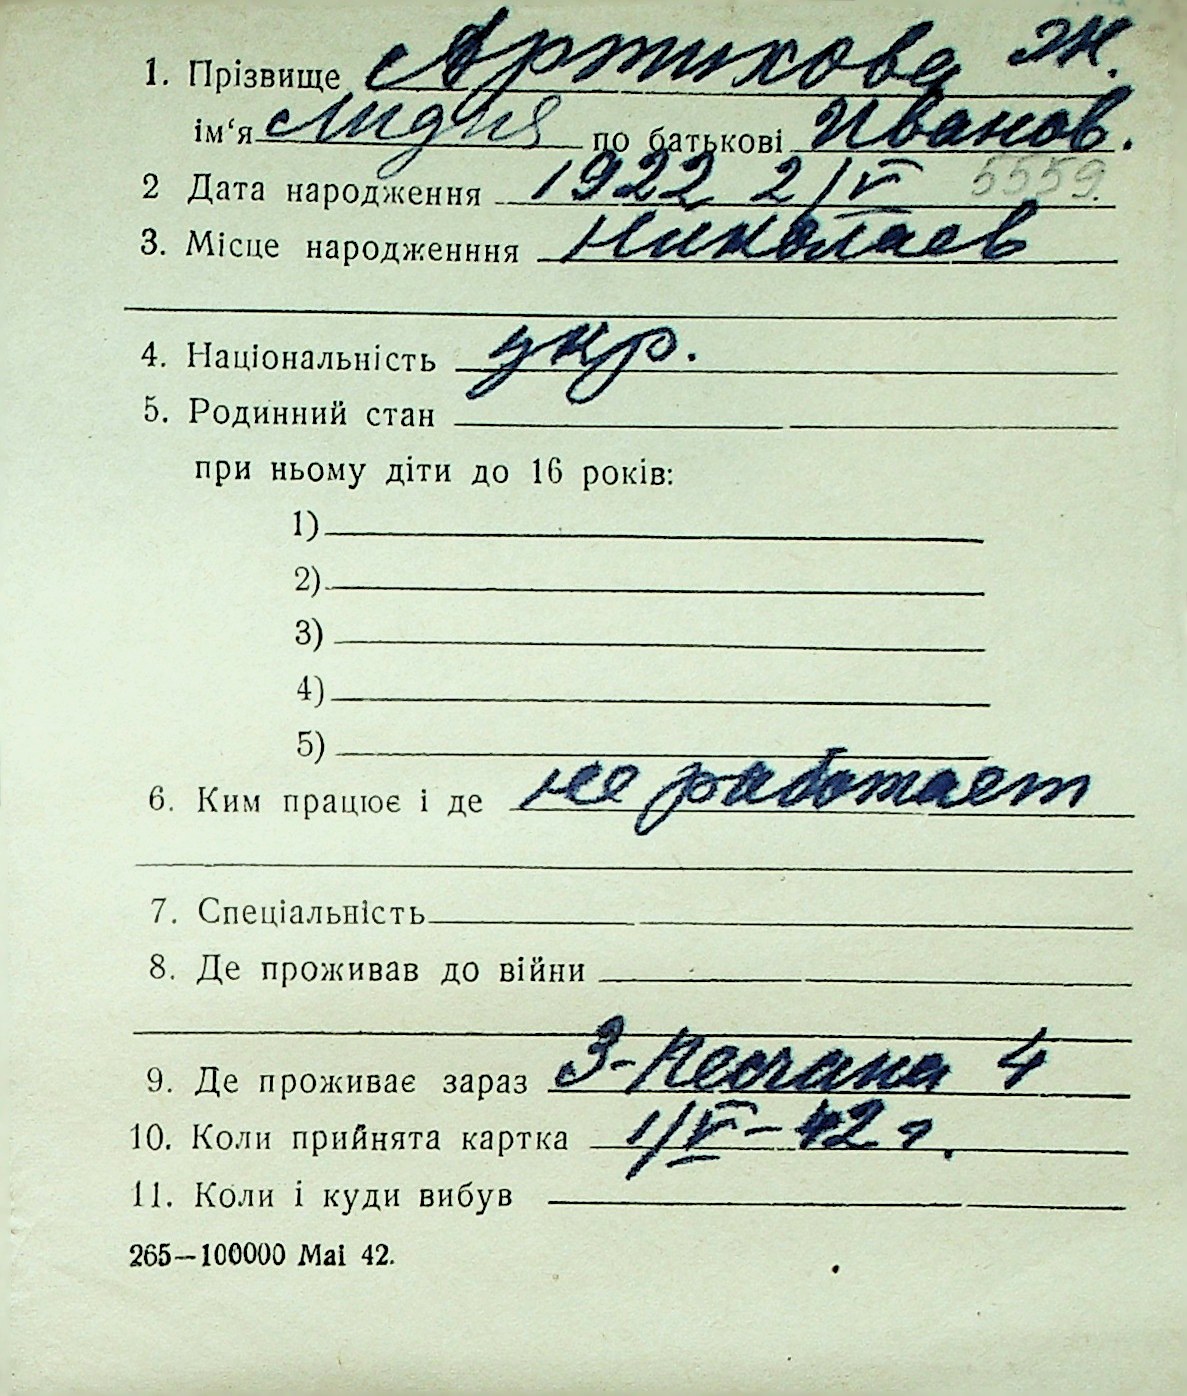 1. Прізвище Артюхова Ж.
ім‘я Лидия по батькові Иванов.
2 Дата народження 1922 2/V 5559.
3. Місце народженння Николаев
4. Національність укр.
5. Родинний стан
при ньому діти до 16 років:
1)
2)
3)
4)
5)
6. Ким працює і де не работает
7. Спеціальність
8. Де проживав до війни
9. Де проживає зараз 3- 4
10. Коли прийнята картка 1/V-42 г.
11. Коли і куди вибув
265—100000 Mai 42.